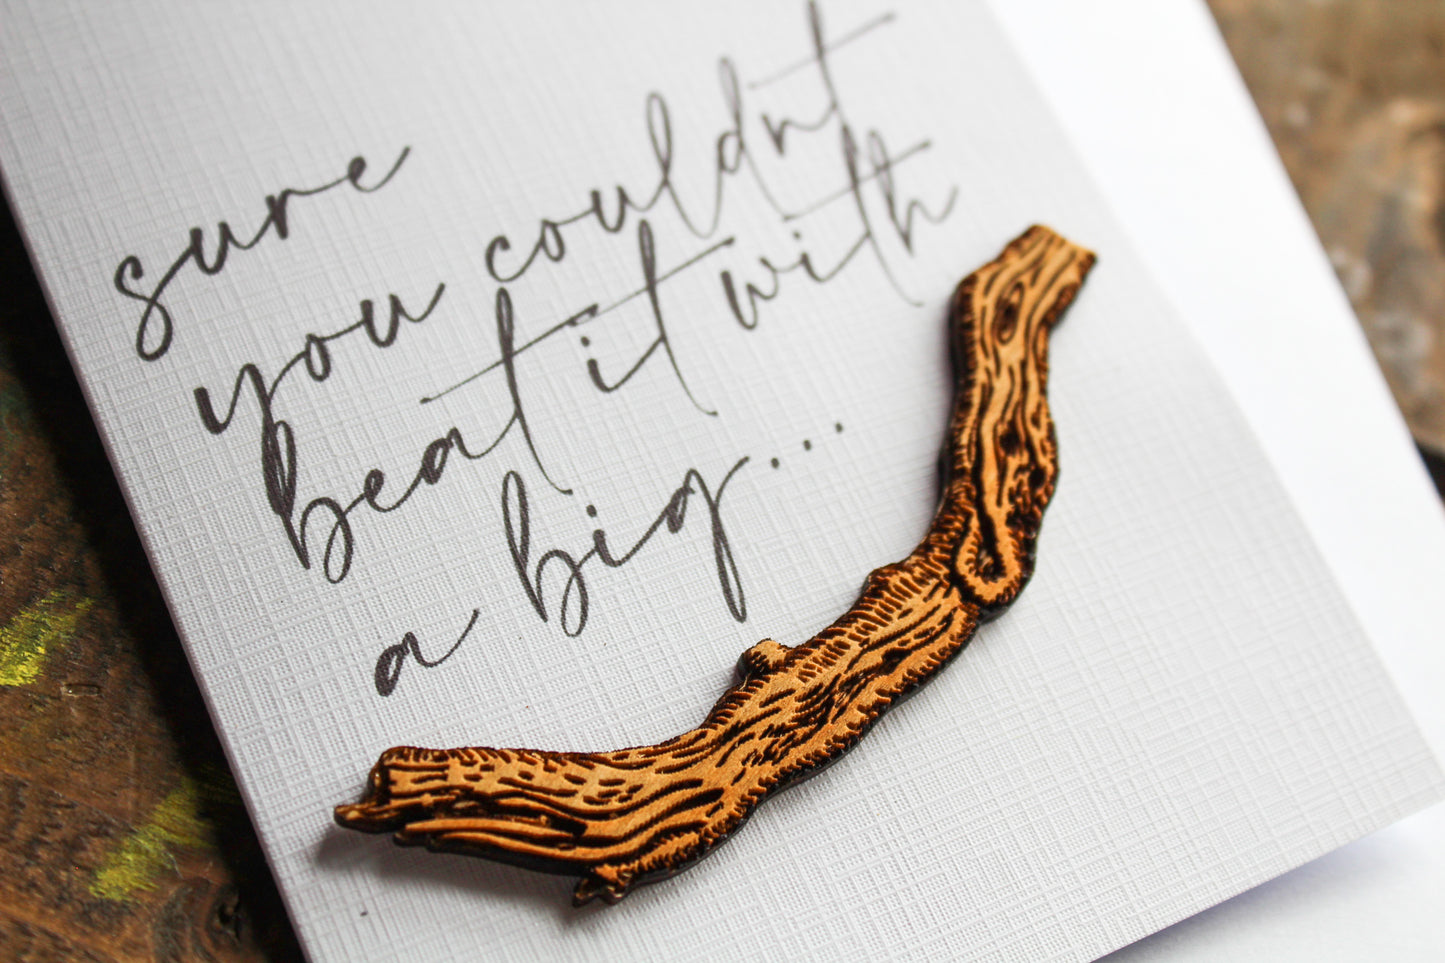 sure
you couldnt
beat it with
a big...